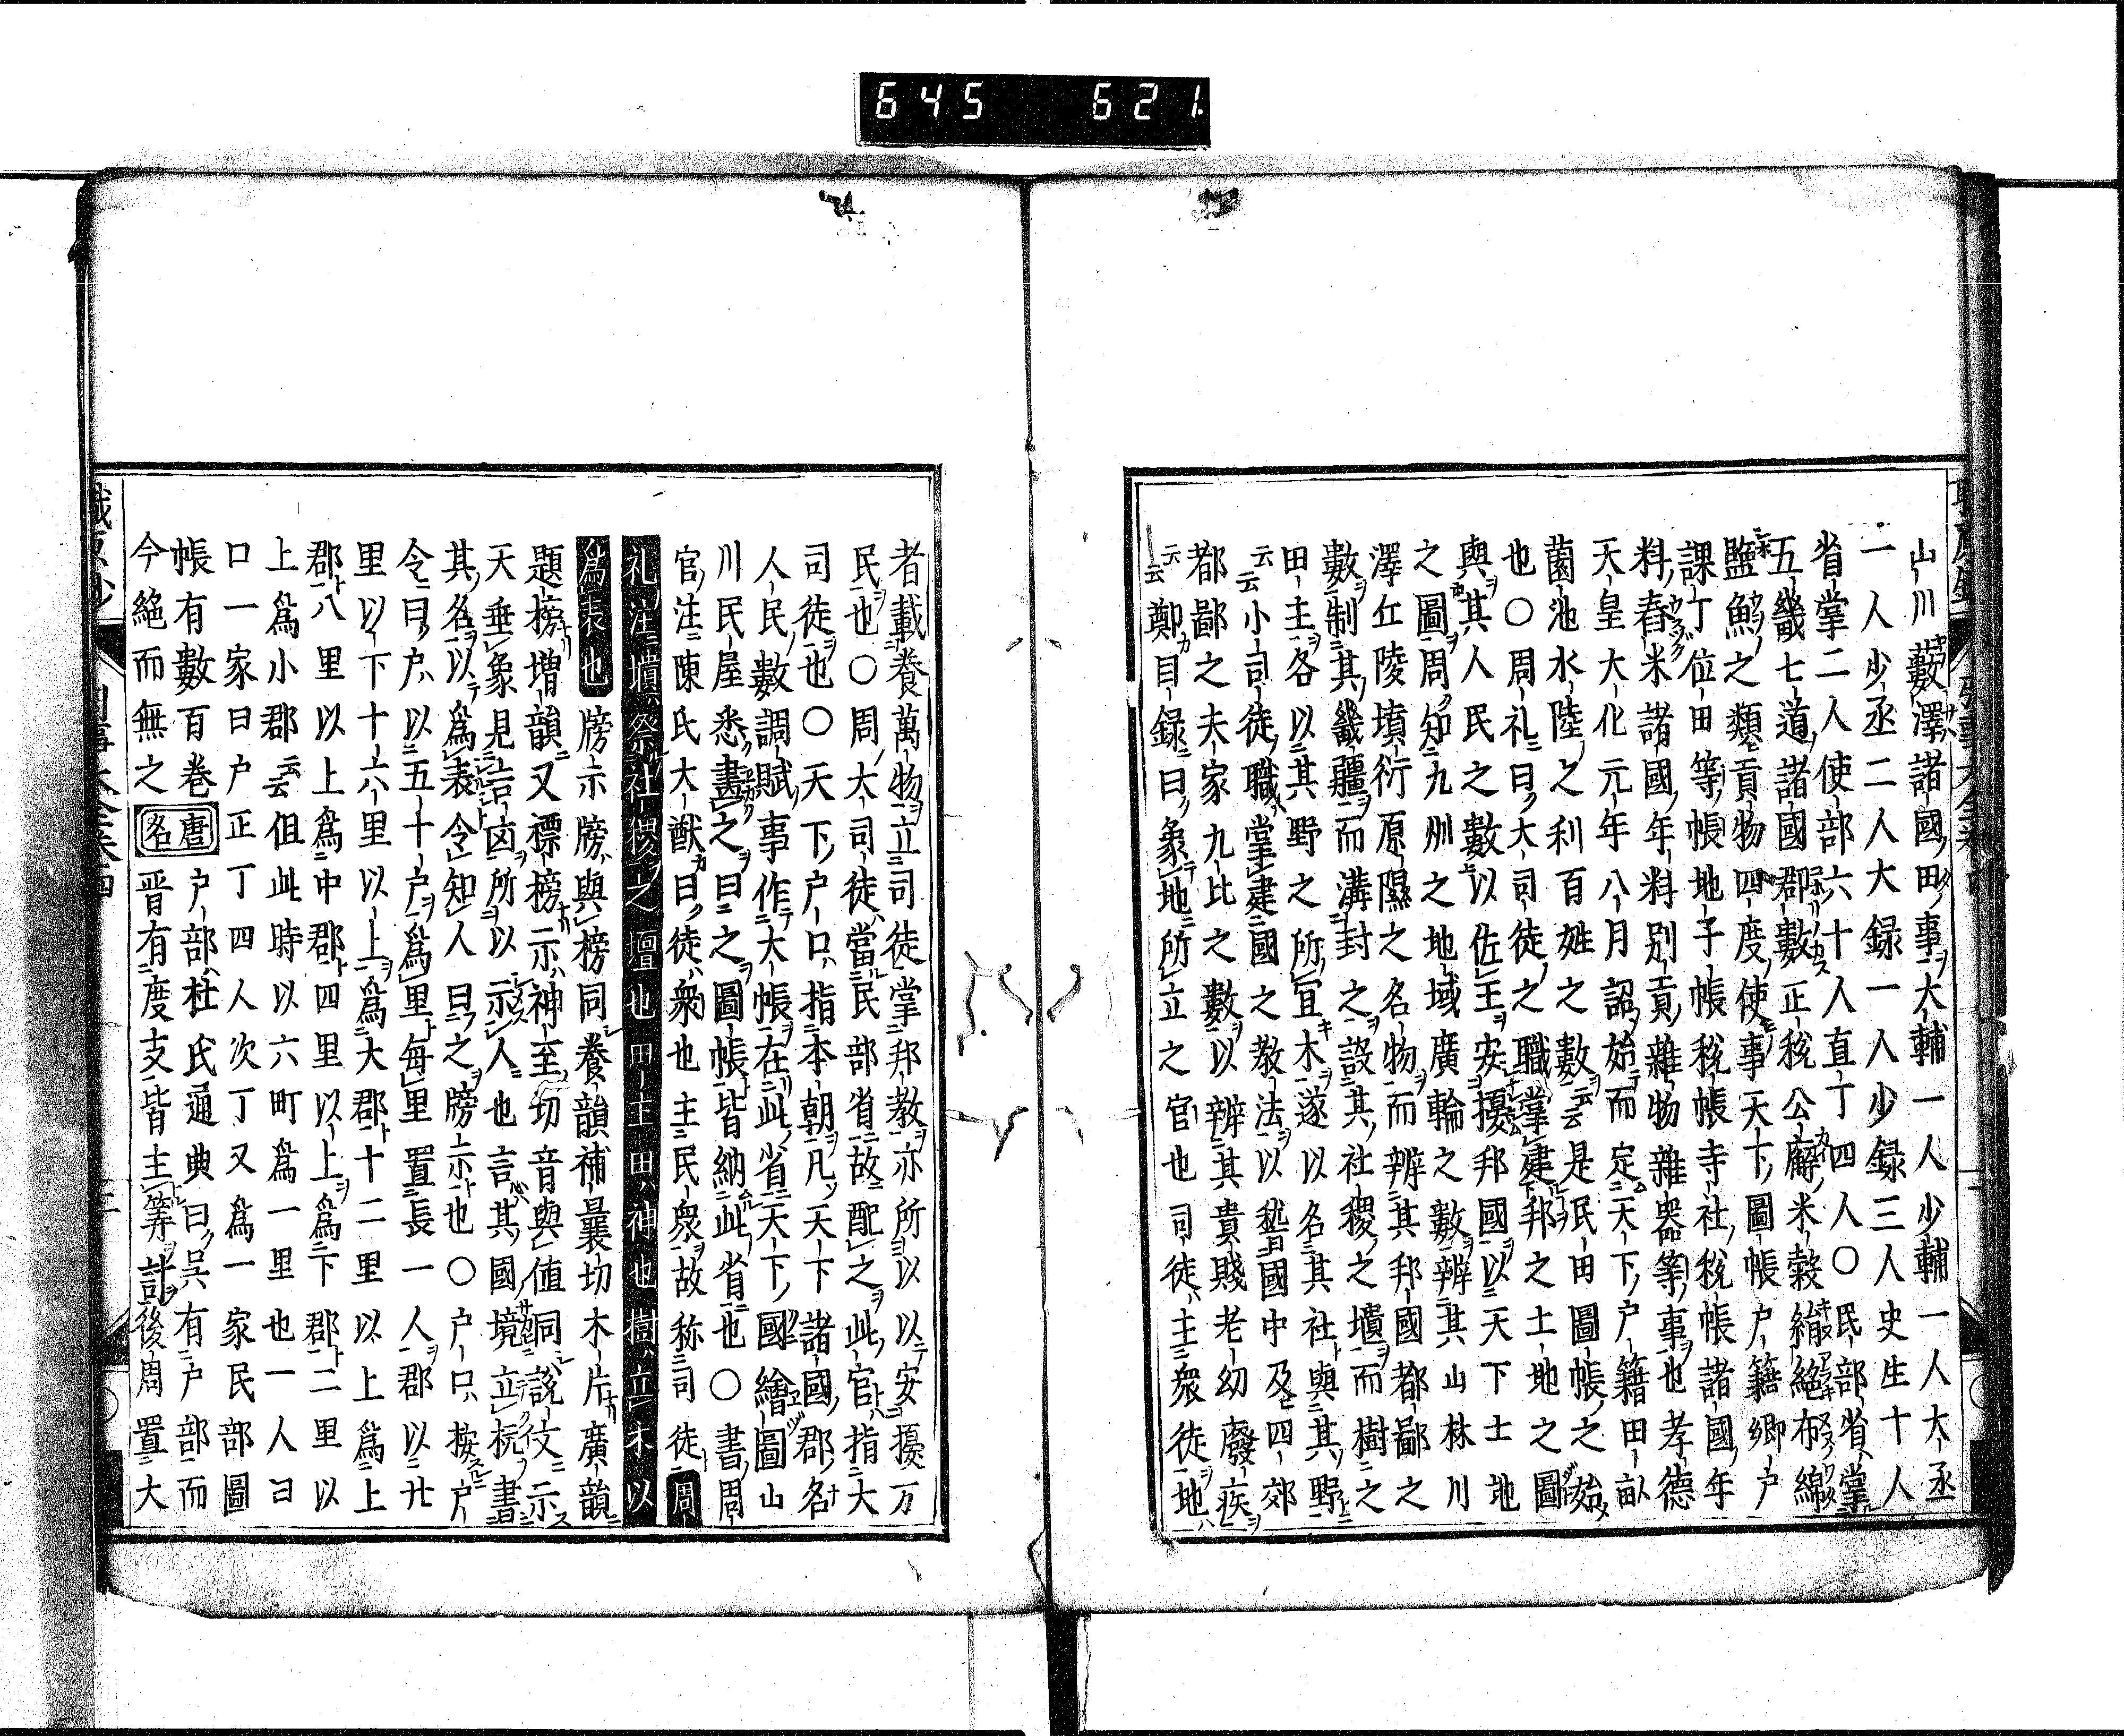 645 621
山川藪澤諸國田事大輔一人少輔一人大丞
一人少丞二人大録一人少録三人史生十人
省掌二人使部六十人直丁四人〇民部省掌
五畿七道諸國郡數正税公廨米穀絹絁布綿
鹽鮹之類貢物四度使事天下圖帳户籍郷户
課丁位田等帳地子帳税帳寺社税帳諸國年
料舂米諸國年料別貢雜物雜器等事也孝德
天皇大化元年八月詔始而定天下户籍田畝
薗池水陸之利百姓之數云云是民田圖帳之始
也〇周礼曰大司徒之職掌建邦之土地之圖
與其人民之數以佐王安擾邦國以天下土地
之圖周知九州之地域廣輪之數辨其山林川
澤丘陵墳衍原隰之名物而辨其邦國都鄙之
數制其畿疆而溝封之設其社稷之壝而樹之
田主各以其野之所宜木遂以名其社與其野
云云小司徒職掌建國之教法以稽國中及四郊
都鄙之夫家九比之數以辨其貴賤老幼廢疾
云云鄭目録曰象地所立之官也司徒主衆徒地
者載養萬物立司徒掌邦教亦所以以安擾万
民也〇周大司徒當民部省故配之此官指大
司徒也〇天下户口指本朝凡天下諸國郡名
人民數調賦事作大帳在此省天下國繪圖山
川民屋悉畫之曰之圖帳皆納此省也〇書周
官注陳氏大猷曰徒衆也主民衆故称司徒周
礼注壝祭社稷之壇也田主田神也樹立木以
爲表也牓示牓與榜同養韻補曩切木片廣韻
題榜増韻又標榜示神至切音與値同説文示
天垂象見吉凶所以示人也言其國境立杭書
其名以爲表令知人曰之牓示也〇户口按户
令曰户以五十户爲里毎里置長一人郡以廿
里以下十六里以上爲大郡十二里以上爲上
郡八里以上爲中郡四里以上爲下郡二里以
上爲小郡云云但此時以六町爲一里也一人曰
口一家曰户正丁四人次丁又爲一家民部圖
帳有數百巻唐名户部杜氏通典曰呉有户部而
今絶而無之晋有度支皆主算計後周置大